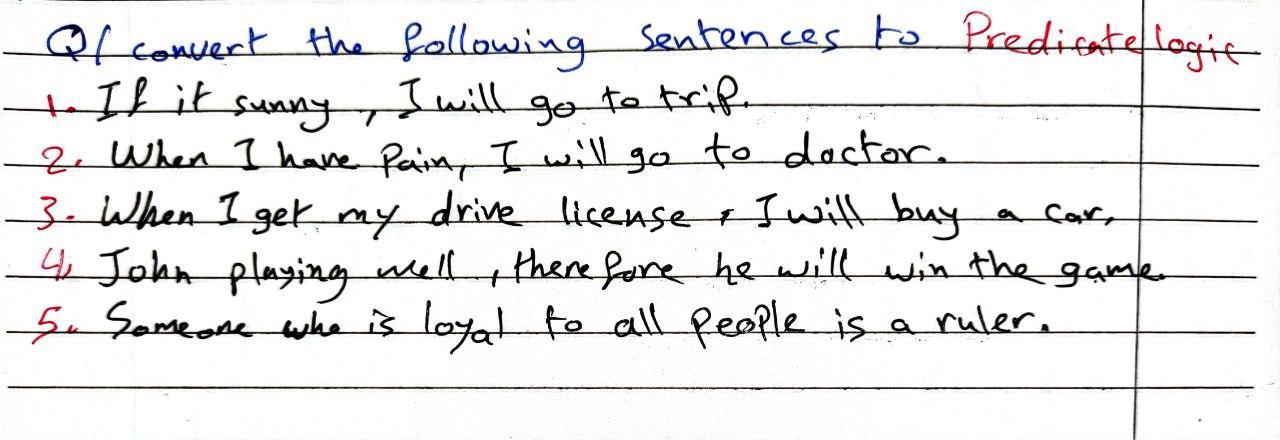 Q/ convert the following sentences to Predicate logic
1. If it sunny, I will go to trip.
2. When I have Pain, I will go to doctor.
3. When I get my drive license, I will buy a car,
4. John playing well, therefore he will win the game.
5. Someone who is loyal to all people is a ruler.